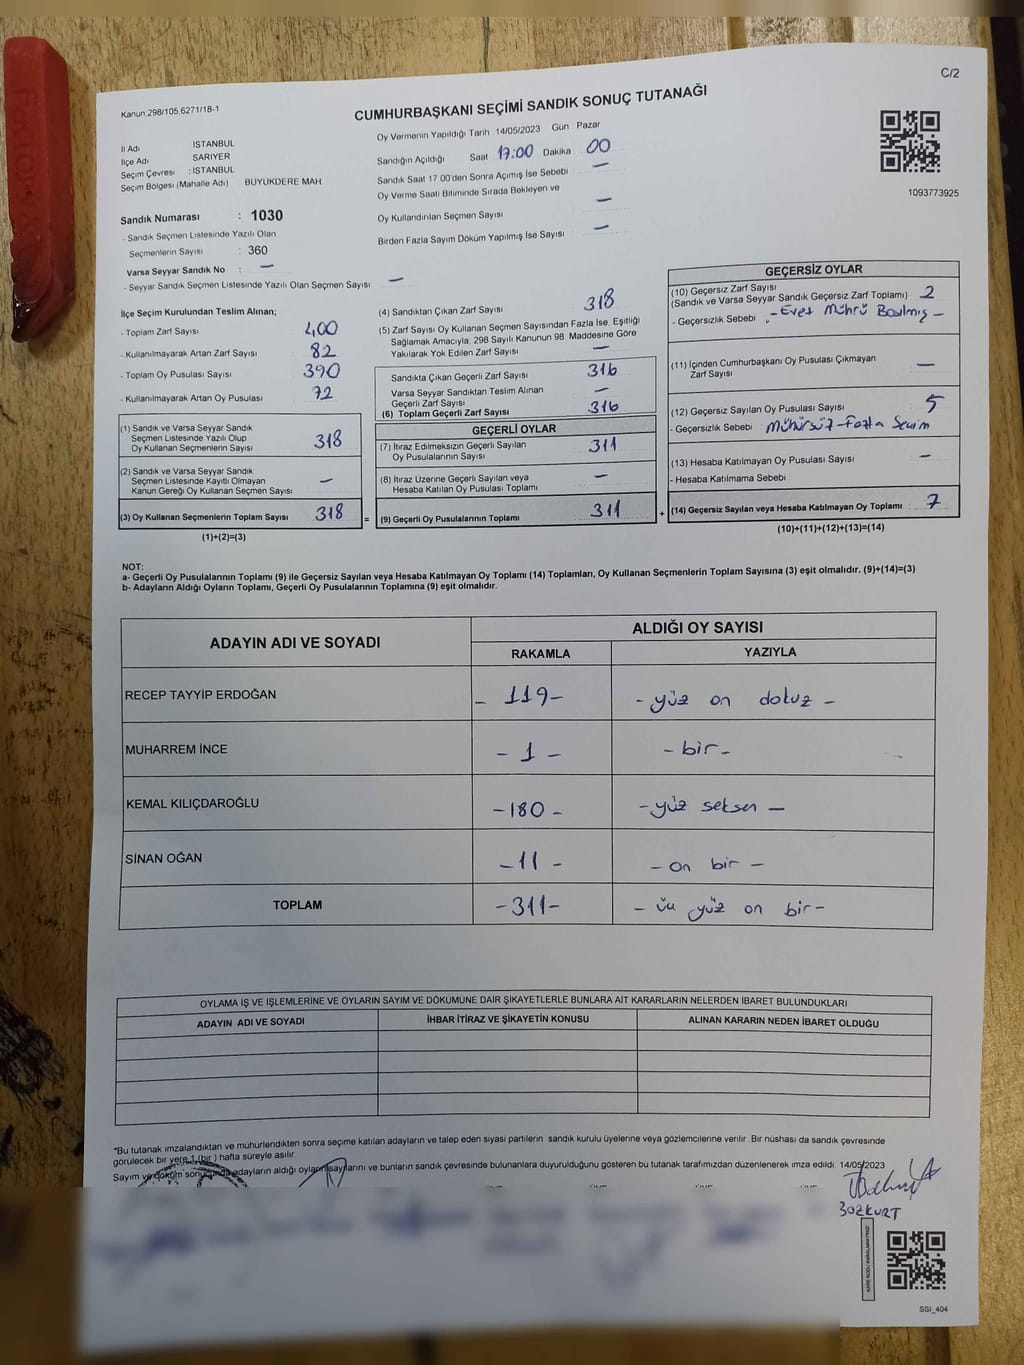 C/2
Kanun.298/105,6271/18-1
CUMHURBAŞKANI SEÇİMİ SANDIK SONUÇ TUTANAĞI
İl Adı İSTANBUL
İlçe Adı SARIYER
Seçim Çevresi : İSTANBUL
Seçim Bölgesi (Mahalle Adı) BÜYÜKDERE MAH
Sandık Numarası : 1030
- Sandık Seçmen Listesinde Yazılı Olan
Seçmenlerin Sayısı : 360
Varsa Seyyar Sandık No : —
- Seyyar Sandık Seçmen Listesinde Yazılı Olan Seçmen Sayısı —
Oy Vermenin Yapıldığı Tarih 14/05/2023 Gün : Pazar
Sandığın Açıldığı Saat 17:00 Dakika 00
Sandık Saat 17 00'den Sonra Açımış İse Sebebi —
Oy Verme Saati Bitiminde Sırada Bekleyen ve
Oy Kullandırılan Seçmen Sayısı —
Birden Fazla Sayım Döküm Yapılmış İse Sayısı —
1093773925
İlçe Seçim Kurulundan Teslim Alınan;
- Toplam Zarf Sayısı 400
- Kullanılmayarak Artan Zarf Sayısı 82
- Toplam Oy Pusulası Sayısı 390
- Kullanılmayarak Artan Oy Pusulası 72
(1) Sandık ve Varsa Seyyar Sandık
Seçmen Listesinde Yazılı Olup
Oy Kullanan Seçmenlerin Sayısı 318
(2) Sandık ve Varsa Seyyar Sandık
Seçmen Listesinde Kayıtlı Olmayan
Kanun Gereği Oy Kullanan Seçmen Sayısı —
(3) Oy Kullanan Seçmenlerin Toplam Sayısı 318
(1)+(2)=(3)
(4) Sandıktan Çıkan Zarf Sayısı 318
(5) Zarf Sayısı Oy Kullanan Seçmen Sayısından Fazla İse, Eşitliği
Sağlamak Amacıyla, 298 Sayılı Kanunun 98. Maddesine Göre
Yakılarak Yok Edilen Zarf Sayısı —
Sandıkta Çıkan Geçerli Zarf Sayısı 316
Varsa Seyyar Sandıktan Teslim Alınan
Geçerli Zarf Sayısı —
(6) Toplam Geçerli Zarf Sayısı 316
GEÇERLİ OYLAR
(7) İtiraz Edilmeksizin Geçerli Sayılan
Oy Pusulalarının Sayısı 311
(8) İtiraz Üzerine Geçerli Sayılan veya
Hesaba Katılan Oy Pusulası Toplamı —
= (9) Geçerli Oy Pusulalarının Toplamı 311
GEÇERSİZ OYLAR
(10) Geçersiz Zarf Sayısı
(Sandık ve Varsa Seyyar Sandık Geçersiz Zarf Toplamı) 2
- Geçersizlik Sebebi - Evet Mührü Basılmış -
(11) İçinden Cumhurbaşkanı Oy Pusulası Çıkmayan
Zarf Sayısı —
(12) Geçersiz Sayılan Oy Pusulası Sayısı 5
- Geçersizlik Sebebi Mühürsüz-Fazla Seçim
(13) Hesaba Katılmayan Oy Pusulası Sayısı —
- Hesaba Katılmama Sebebi
+ (14) Geçersiz Sayılan veya Hesaba Katılmayan Oy Toplamı 7
(10)+(11)+(12)+(13)=(14)
NOT:
a- Geçerli Oy Pusulalarının Toplamı (9) ile Geçersiz Sayılan veya Hesaba Katılmayan Oy Toplamı (14) Toplamları, Oy Kullanan Seçmenlerin Toplam Sayısına (3) eşit olmalıdır. (9)+(14)=(3)
b- Adayların Aldığı Oyların Toplamı, Geçerli Oy Pusulalarının Toplamına (9) eşit olmalıdır.
ADAYIN ADI VE SOYADI
ALDIĞI OY SAYISI
RAKAMLA YAZIYLA
RECEP TAYYİP ERDOĞAN - 119 - - yüz on dokuz -
MUHARREM İNCE - 1 - - bir -
KEMAL KILIÇDAROĞLU - 180 - - yüz seksen -
SİNAN OĞAN - 11 - - on bir -
TOPLAM - 311 - - üç yüz on bir -
OYLAMA İŞ VE İŞLEMLERİNE VE OYLARIN SAYIM VE DÖKÜMÜNE DAİR ŞİKAYETLERLE BUNLARA AİT KARARLARIN NELERDEN İBARET BULUNDUKLARI
ADAYIN ADI VE SOYADI İHBAR İTİRAZ VE ŞİKAYETİN KONUSU ALINAN KARARIN NEDEN İBARET OLDUĞU
*Bu tutanak imzalandıktan ve mühürlendikten sonra seçime katılan adayların ve talep eden siyasi partilerin sandık kurulu üyelerine veya gözlemcilerine verilir. Bir nüshası da sandık çevresinde
görülecek bir yere 1 (bir) hafta süreyle asılır.
Sayım ve döküm sonucunda adayların aldığı oyların sayılarını ve bunların sandık çevresinde bulunanlara duyurulduğunu gösteren bu tutanak tarafımızdan düzenlenerek imza edildi. 14/05/2023
BOZKURT
SSİ_404